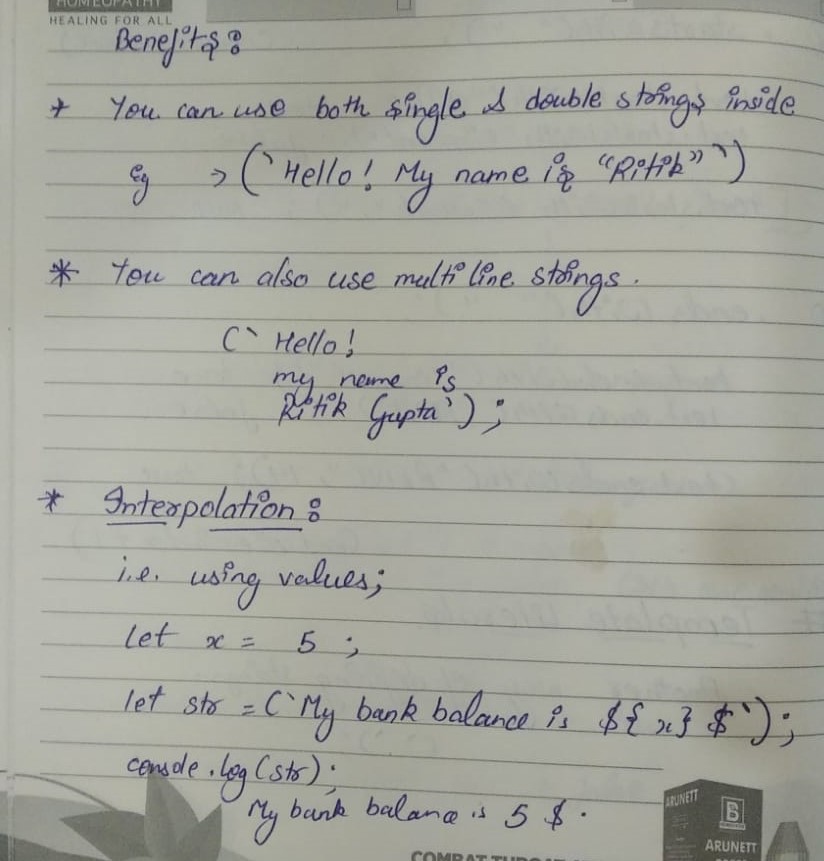 HOMEOPATHY
HEALING FOR ALL
Benefits:
* You can use both single & double strings inside
Eg → (`Hello! My name is "Ritik"`)
* You can also use multi line strings.
(` Hello!
my name is
Ritik Gupta`);
* Interpolation:
i.e. using values;
Let x = 5;
let str = (`My bank balance is ${x} $`);
console.log(str);
My bank balance is 5 $.
ARUNETT
B
ARUNETT